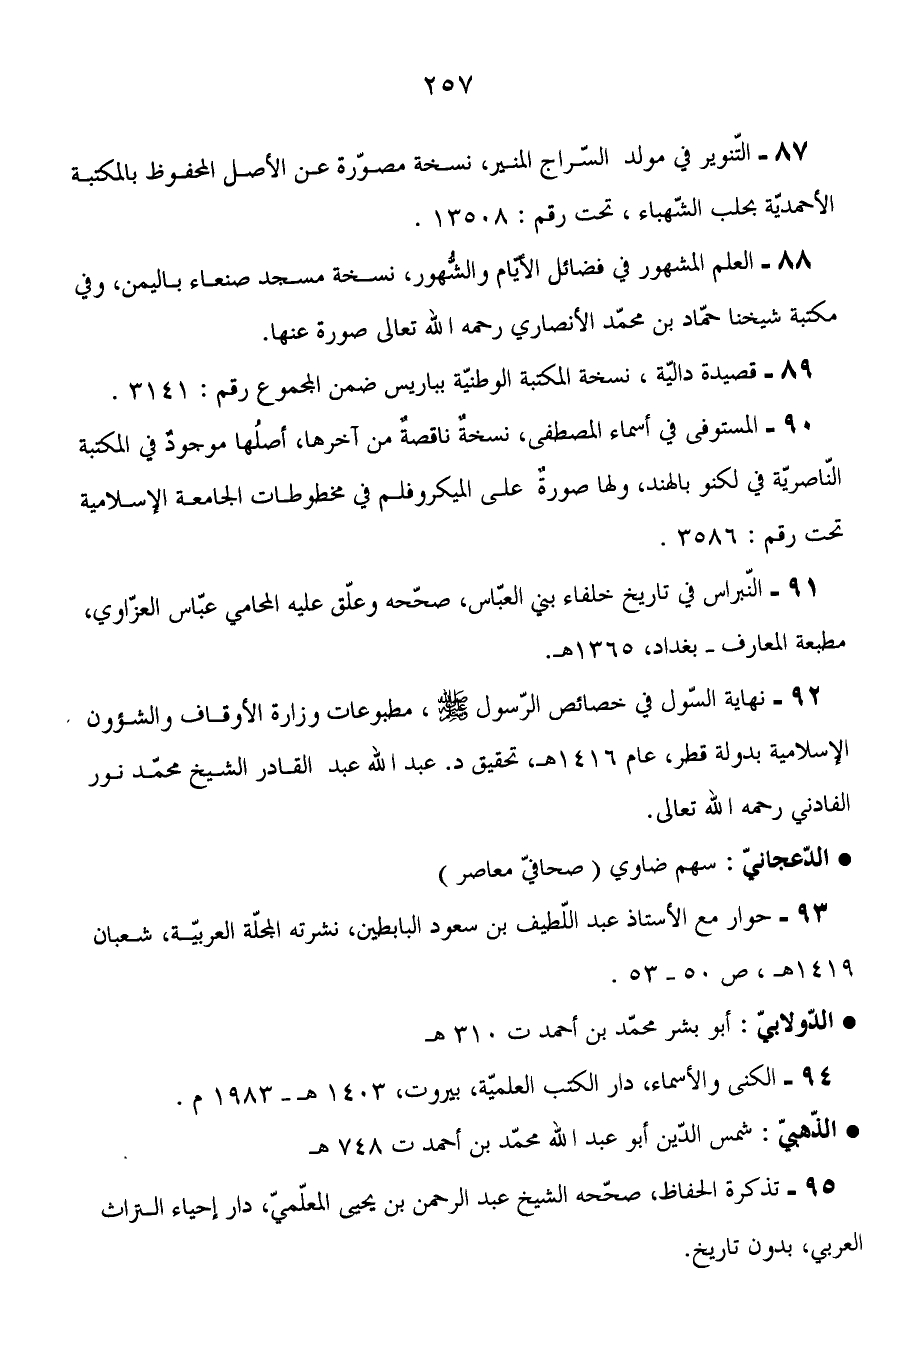 ٢٥٧
٨٧ ـ التّنوير في مولد السّراج المنير، نسخة مصوّرة عن الأصل المحفوظ بالمكتبة
الأحمديّة بحلب الشّهباء ، تحت رقم : ١٣٥٠٨ .
٨٨ ـ العلم المشهور في فضائل الأيّام والشُّهور، نسخة مسجد صنعاء باليمن، وفي
مكتبة شيخنا حمّاد بن محمّد الأنصاري رحمه الله تعالى صورة عنها.
٨٩ ـ قصيدة داليّة ، نسخة المكتبة الوطنيّة بباريس ضمن المجموع رقم : ٣١٤١ .
٩٠ ـ المستوفى في أسماء المصطفى، نسخةٌ ناقصةٌ من آخرها، أصلُها موجودٌ في المكتبة
النّاصريّة في لكنو بالهند، ولها صورةٌ على الميكروفلم في مخطوطات الجامعة الإسلامية
تحت رقم : ٣٥٨٦ .
٩١ ـ النّبراس في تاريخ خلفاء بني العبّاس، صحّحه وعلّق عليه المحامي عبّاس العزّاوي،
مطبعة المعارف ـ بغداد، ١٣٦٥هـ.
٩٢ ـ نهاية السّول في خصائص الرّسول ﷺ ، مطبوعات وزارة الأوقاف والشؤون
الإسلامية بدولة قطر، عام ١٤١٦هـ، تحقيق د. عبد الله عبد القادر الشيخ محمّد نور
الفادني رحمه الله تعالى.
● الدّعجانيّ : سهم ضاوي ( صحافيّ معاصر )
٩٣ ـ حوار مع الأستاذ عبد اللّطيف بن سعود البابطين، نشرته المجلّة العربيّة، شعبان
١٤١٩هـ ، ص ٥٠ ـ ٥٣ .
● الدّولابيّ : أبو بشر محمّد بن أحمد ت ٣١٠ هـ
٩٤ ـ الكنى والأسماء، دار الكتب العلميّة، بيروت، ١٤٠٣ هـ ـ ١٩٨٣ م .
● الذّهبيّ : شمس الدّين أبو عبد الله محمّد بن أحمد ت ٧٤٨ هـ
٩٥ ـ تذكرة الحفاظ، صحّحه الشيخ عبد الرحمن بن يحيى المعلّميّ، دار إحياء التراث
العربي، بدون تاريخ.